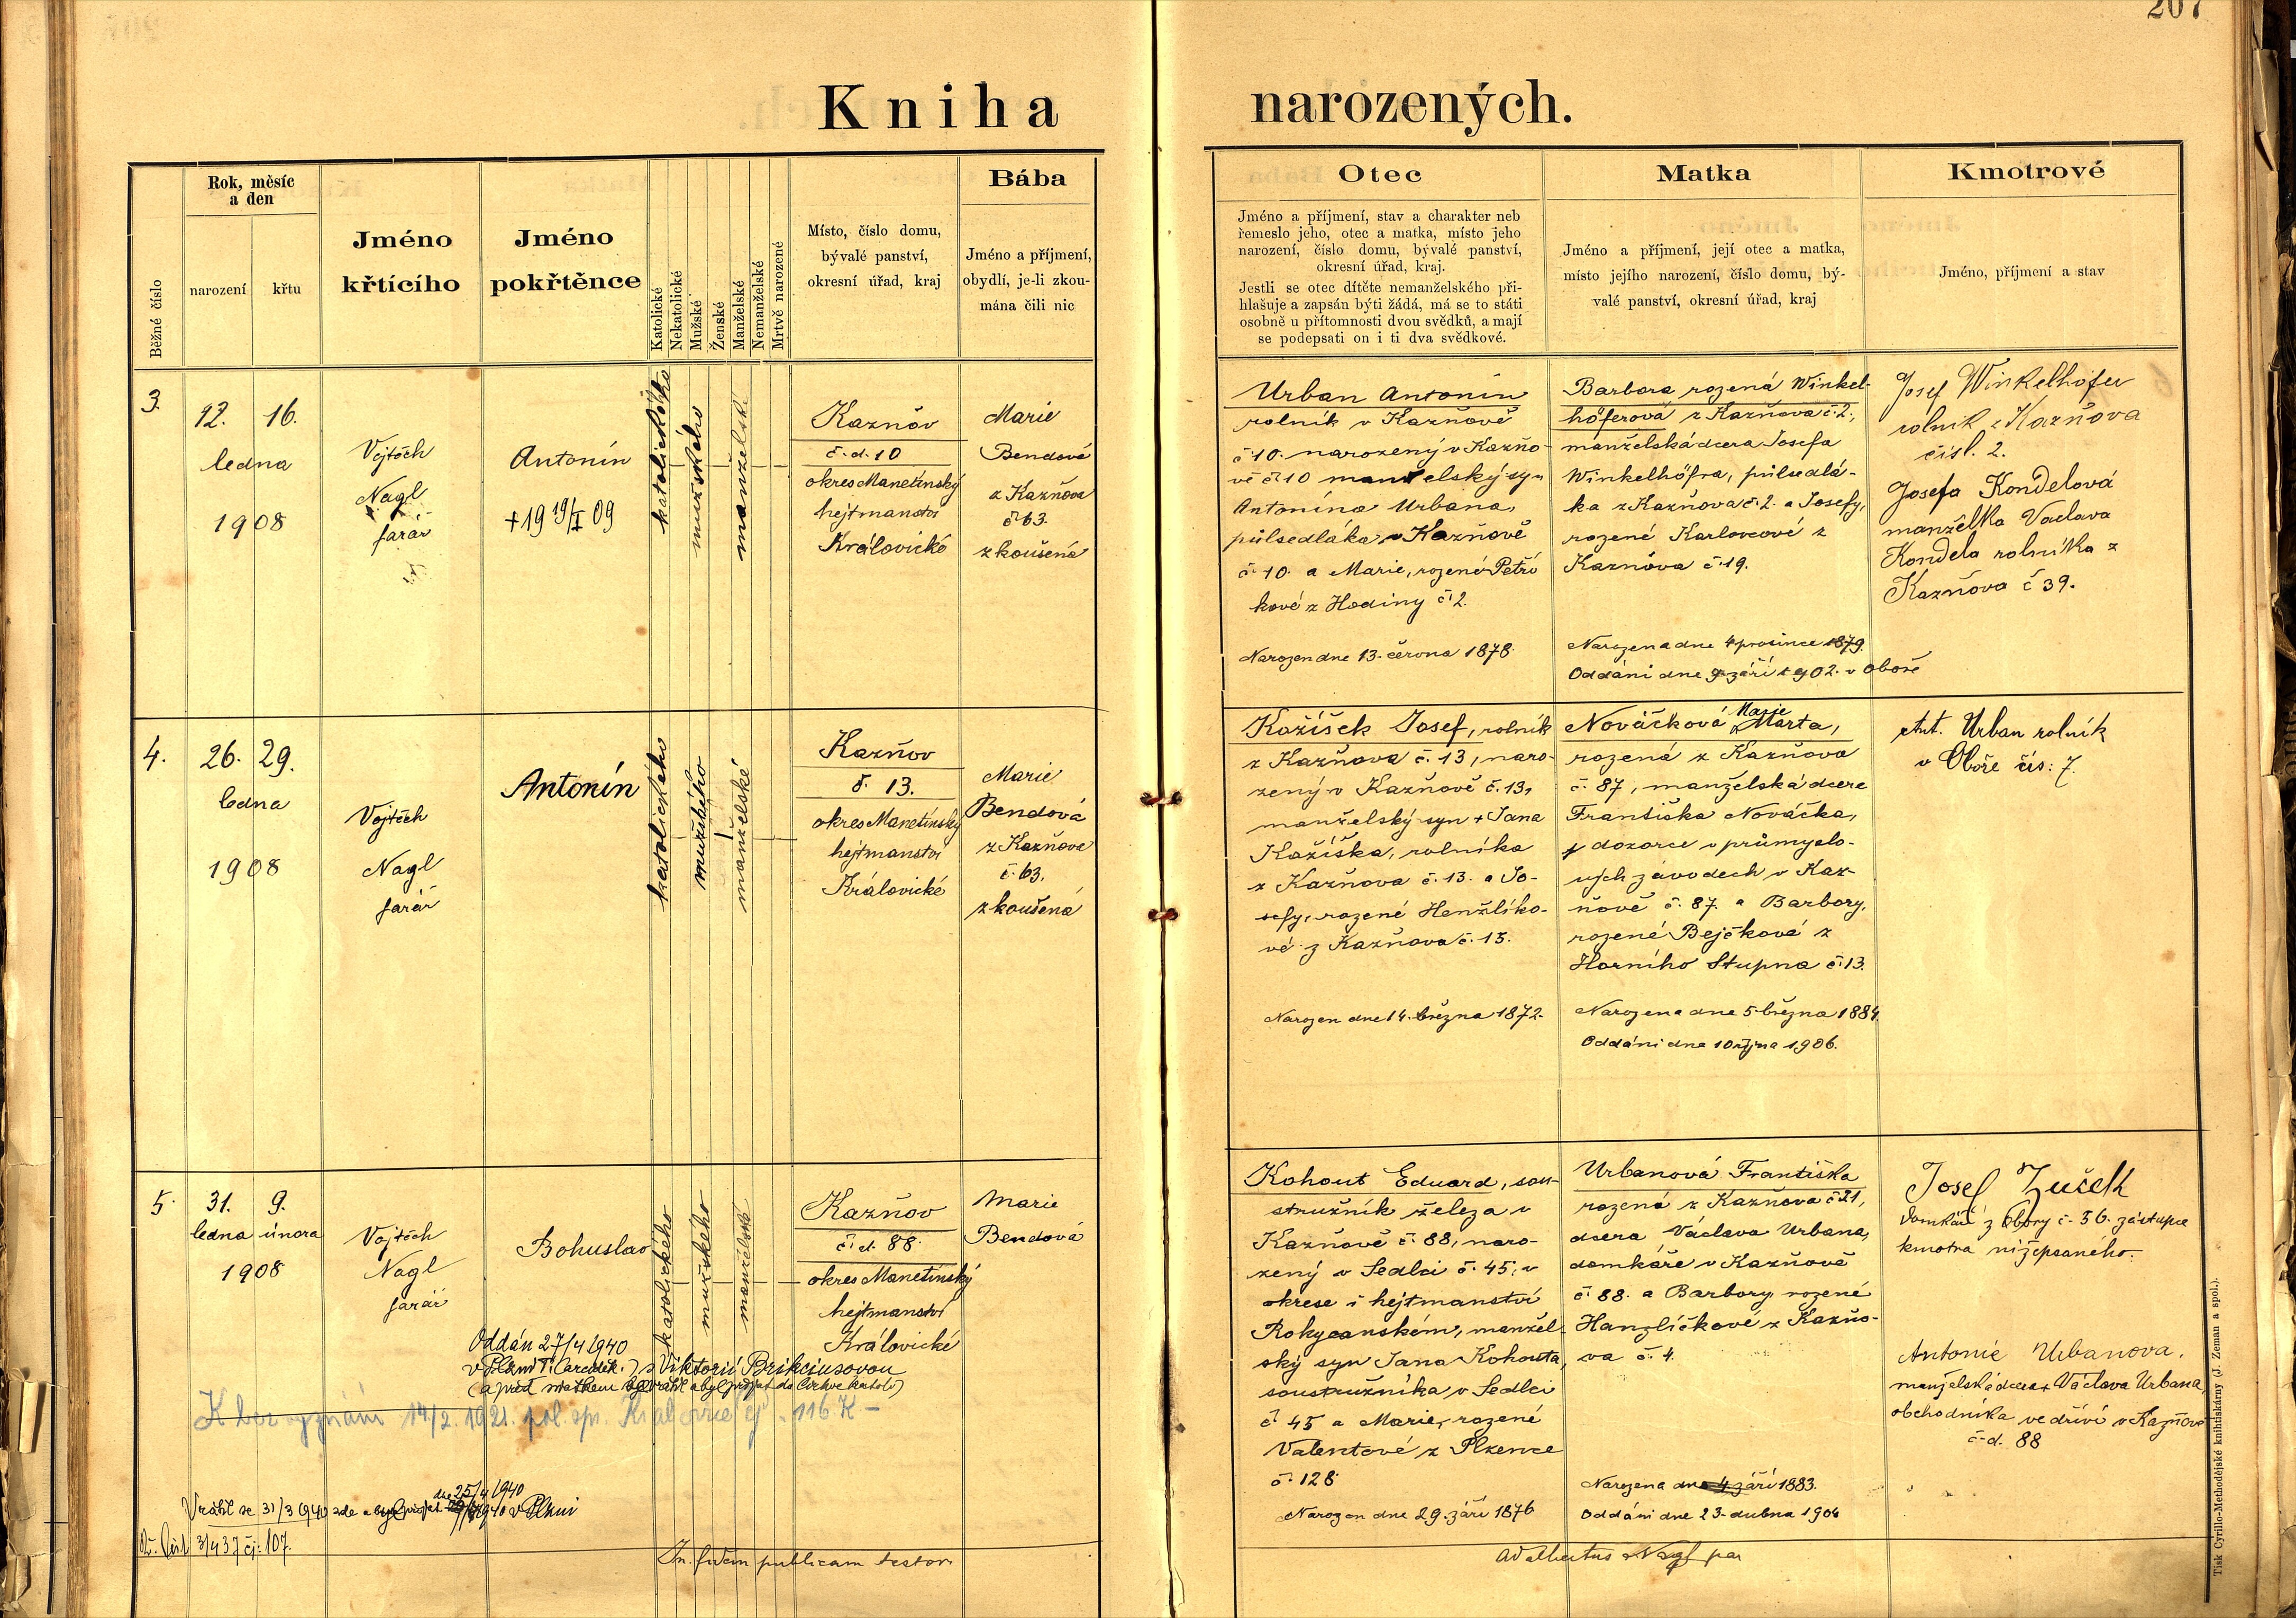 207
Kniha narozených.
Běžné číslo
Rok, měsíc
a den
narození
křtu
Jméno
křtícího
Jméno
pokřtěnce
Katolické
Nekatolické
Mužské
Ženské
Manželské
Nemanželské
Mrtvě narozené
Místo, číslo domu,
bývalé panství,
okresní úřad, kraj
Bába
Jméno a příjmení,
obydlí, je-li zkou-
mána čili nic
Otec
Jméno a příjmení, stav a charakter neb
řemeslo jeho, otec a matka, místo jeho
narození, číslo domu, bývalé panství,
okresní úřad, kraj.
Jestli se otec dítěte nemanželského při-
hlašuje a zapsán býti žádá, má se to státi
osobně u přítomnosti dvou svědků, a mají
se podepsati on i ti dva svědkové.
Matka
Jméno a příjmení, její otec a matka,
místo jejího narození, číslo domu, bý-
valé panství, okresní úřad, kraj
Kmotrové
Jméno, příjmení a stav
3.
12. 16.
ledna
1908
Vojtěch
Nagl
farář
Antonín
+19 19/I 09
katolického
mužského
manželské
Kazňov
č. d. 10
okres Manetínský
hejtmanství
Královické
Marie
Bendová
z Kazňova
č 63.
zkoušená
Urban Antonín
rolník v Kazňově
č 10. narozený v Kazňo-
vě č 10 manželský syn
Antonína Urbana,
půlsedláka v Kazňově
č 10. a Marie, rozené Petří
kové z Hodiny č 2.
Narozen dne 13. června 1878.
Barbora rozená Winkel-
höferová z Kazňova č. 2.,
manželská dcera Josefa
Winkelhöfra, půlsedlá-
ka z Kazňova č. 2. a Josefy,
rozené Karlovcové z
Kazňova č 19.
Narozena dne 4 prosince 1879.
Oddáni dne 9 září 1902. v Oboře
Josef Winkelhöfer
rolník z Kazňova
čísl. 2.
Josefa Kondelová
manželka Václava
Kondela rolníka z
Kazňova č 39.
4.
26. 29.
ledna
1908
Vojtěch
Nagl
farář
Antonín
katolického
mužského
manželské
Kazňov
č. 13.
okres Manetínský
hejtmanství
Královické
Marie
Bendová
z Kazňova
č. 63.
zkoušená
Kažíšek Josef, rolník
z Kazňova č. 13, naro-
zený v Kazňově č. 13,
manželský syn + Jana
Kažíška, rolníka
z Kazňova č. 13. a Jo-
sefy, rozené Henžlíko-
vé z Kazňova č. 15.
Narozen dne 14. března 1872.
Marie
Nováčková Marta,
rozená z Kazňova
č. 87, manželská dcera
Františka Nováčka,
dozorce v průmyslo-
vých závodech v Kaz-
ňově č. 87. a Barbory,
rozené Bejčkové z
Horního Stupna č. 13.
Narozena dne 5 března 1884.
Oddáni dne 10 října 1906.
Ant. Urban rolník
v Oboře čís: 7.
5.
31. 9.
ledna února
1908
Vojtěch
Nagl
farář
Bohuslav
katolického
mužského
manželské
Kazňov
č. d. 88.
okres Manetínský
hejtmanství
Královické
Marie
Bendová
Kohout Eduard, sou-
stružník železa v
Kazňově č 88, naro-
zený v Sedlci č. 45, v
okrese i hejtmanství
Rokycanském, manžel-
ský syn Jana Kohouta,
soustružníka v Sedlci
č 45 a Marie, rozené
Valentové z Plzence
č. 128
Narozen dne 29. září 1876
Urbanová Františka
rozená z Kazňova č 21,
dcera Václava Urbana,
domkáře v Kazňově
č 88. a Barbory rozené
Hanzlíčkové z Kazňo-
va č. 4.
Narozena dne 4 září 1883.
Oddáni dne 23. dubna 1906
Josef Zušek
domkář z Obory č. 56. zástupce
kmotra nížepsaného.
Antonie Urbanova.
manželská dcera + Václava Urbana,
obchodníka ve dříví v Kazňově
č. d. 88
Oddán 27/4 1940
v Plzni s Viktorií Brikciusovou
K bez vyznání 14/2. 1921. pol. spr. Kralovice čj. 116 K -
dne 25/4 1940
Vrátil se 31/3 1940 v Plzni
107.
In fidem publicam testor
Adalbertus Nagl par
Tisk Cyrillo-Methodějské knihtiskárny (J. Zeman a spol.).